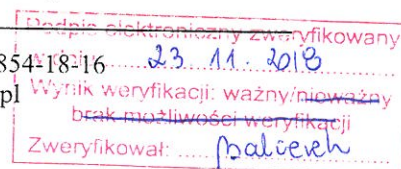 Podpis elektroniczny zweryfikowany
854-18-16
23 11. 2018
pl
Wynik weryfikacji: ważny/nieważny
brak możliwości weryfikacji
Zweryfikował: ..... Balcerek